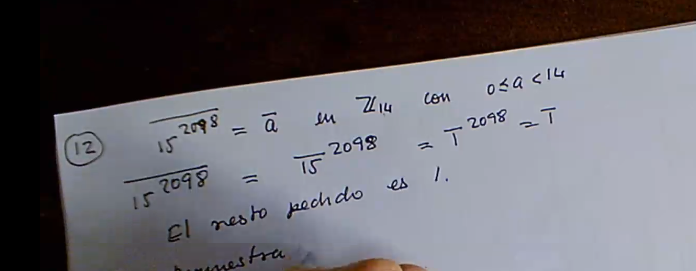 12 $\overline{15^{2098}} = \overline{a}$ en $\mathbb{Z}_{14}$ con $0 \leq a < 14$
$\overline{15^{2098}} = \overline{15}^{2098} = \overline{1}^{2098} = \overline{1}$
El resto pedido es 1.